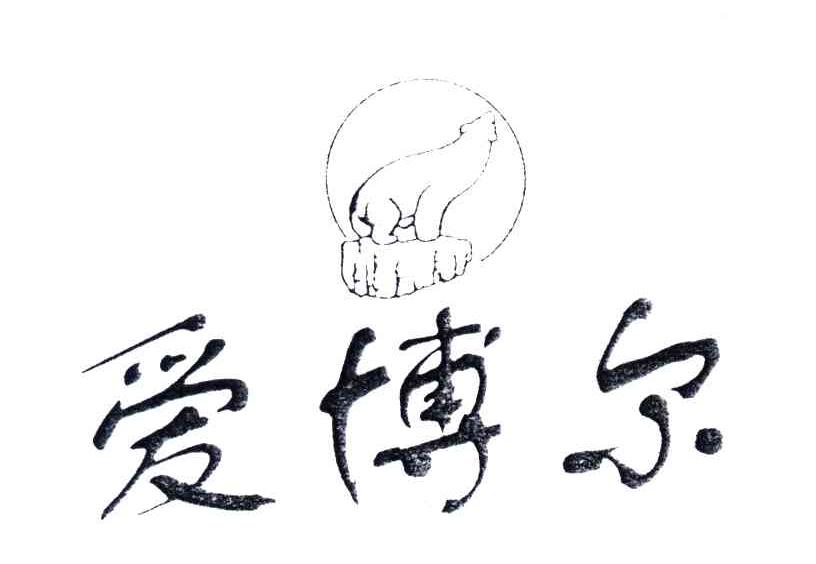 爱博尔